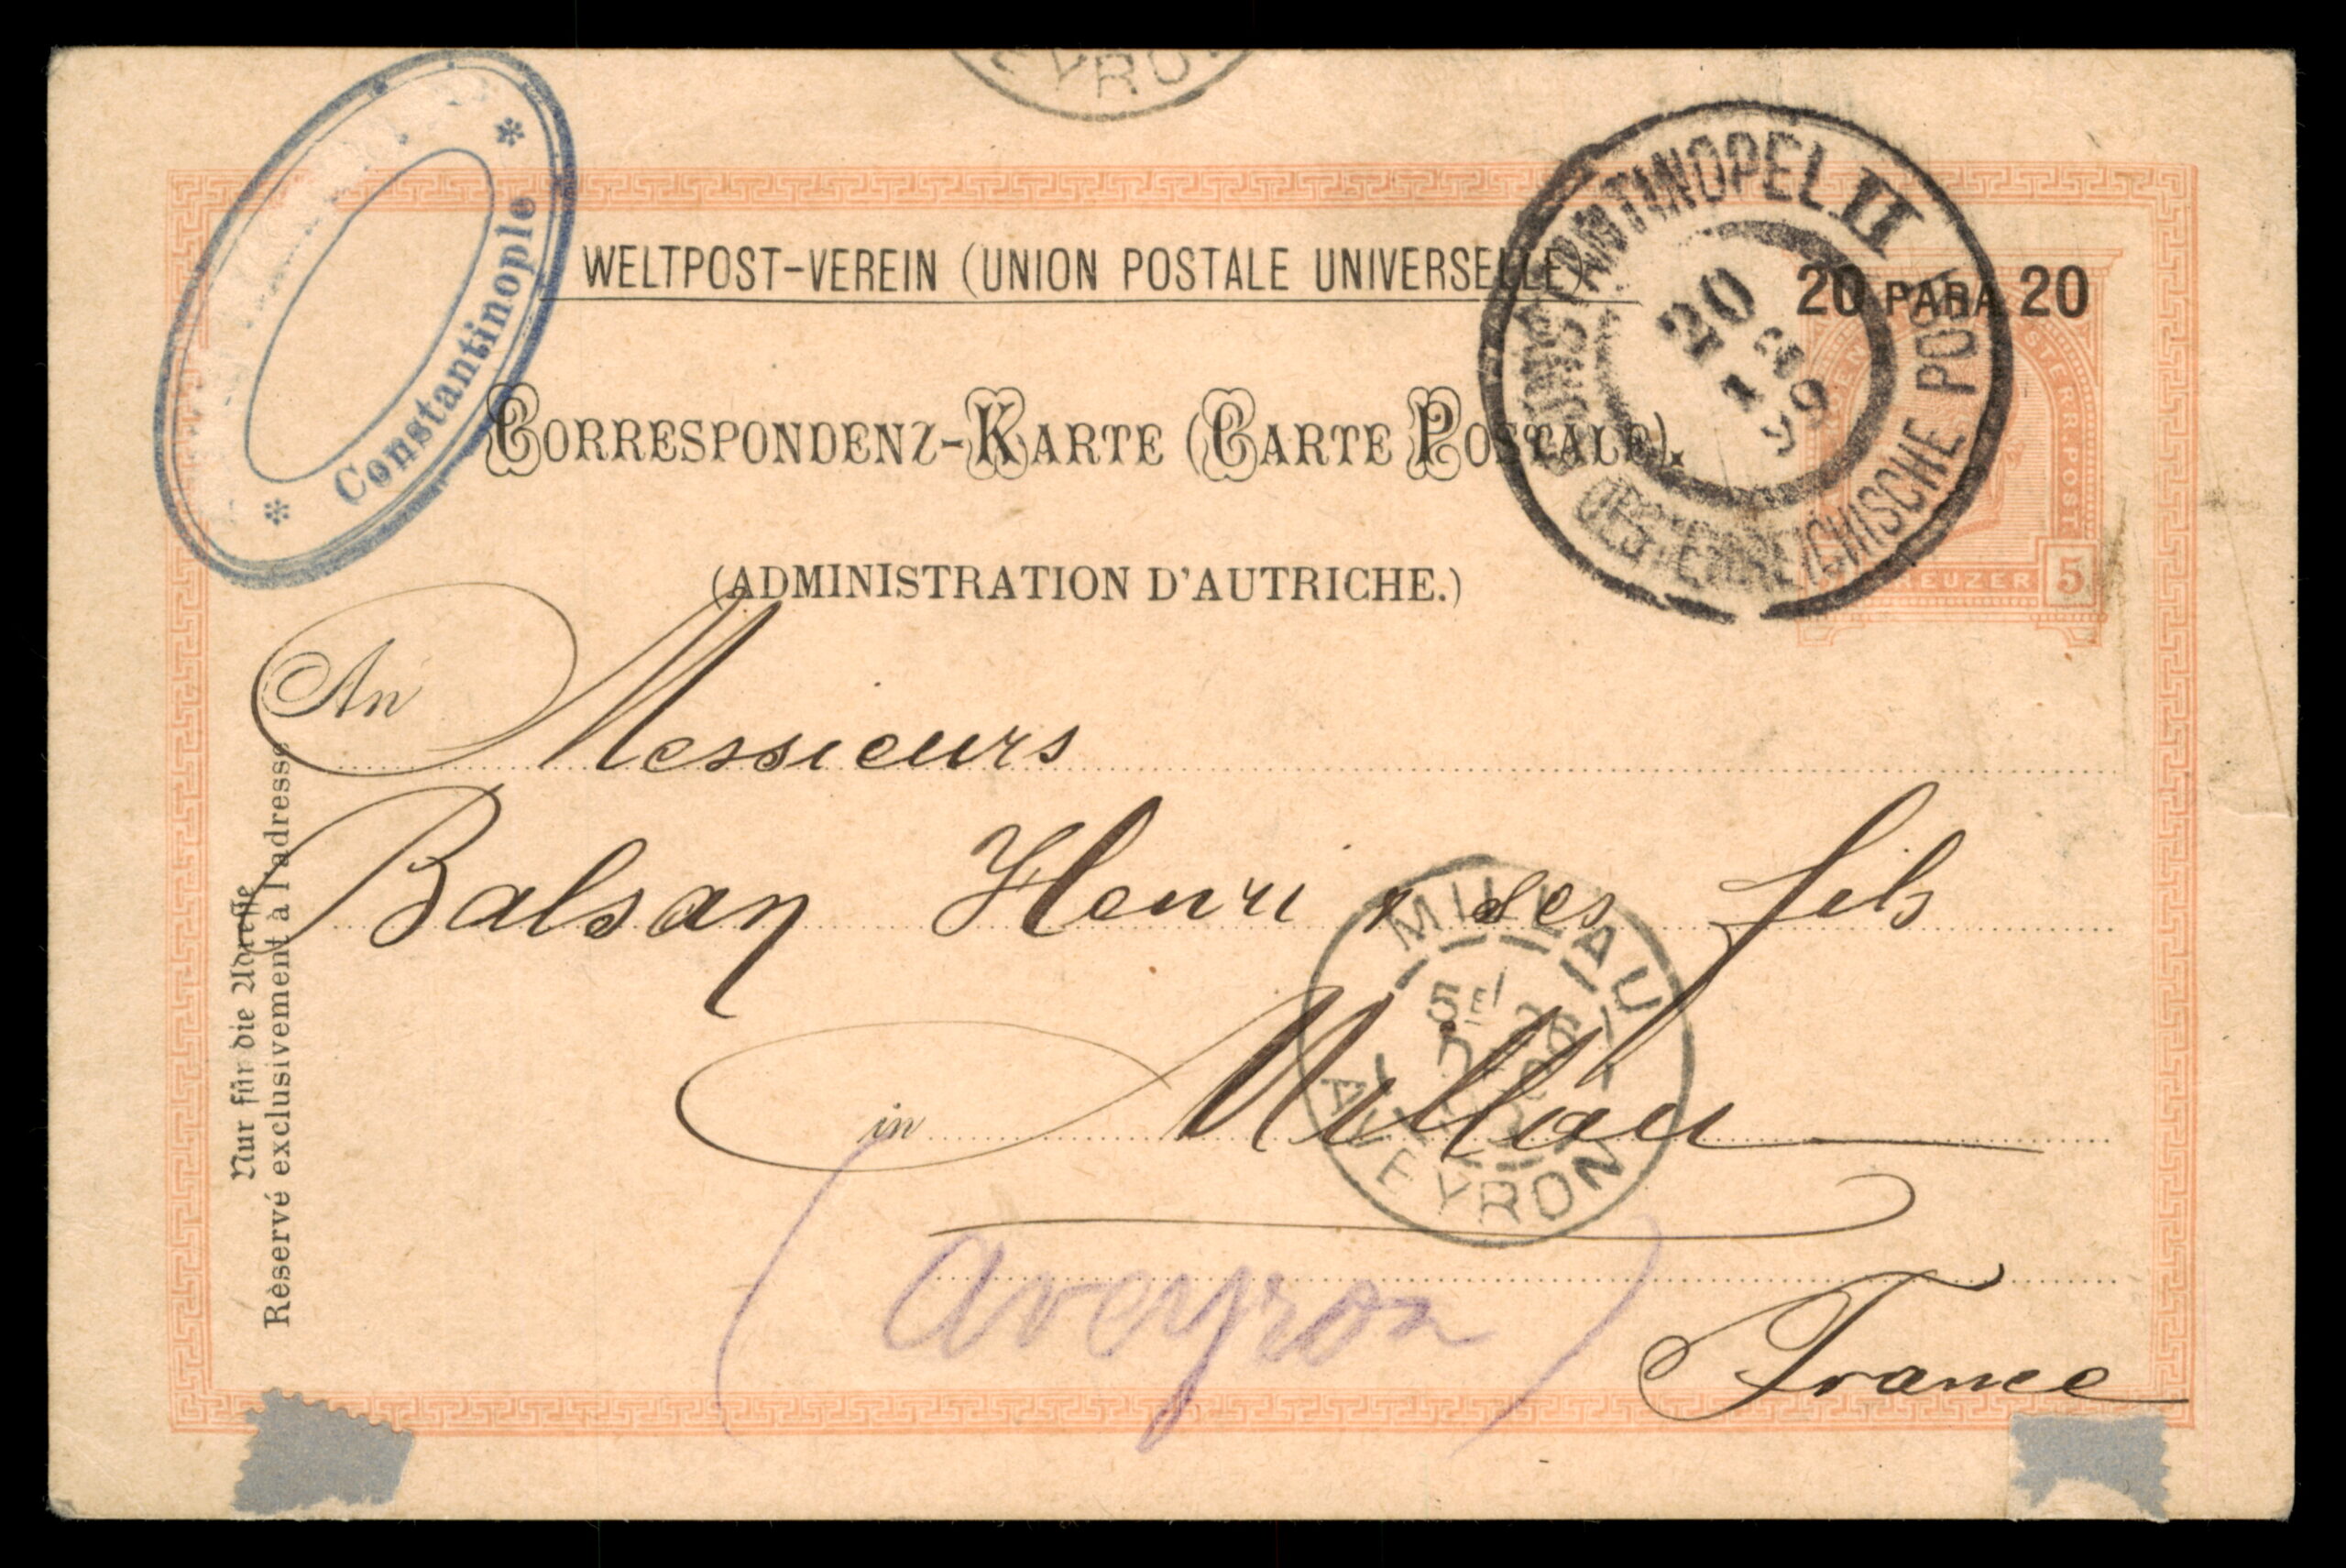 EYRO
Constantinople
WELTPOST-VEREIN (UNION POSTALE UNIVERSELLE).
CONSTANTINOPEL II
20
99
OESTERREICHISCHE POST
20 PARA 20
CORRESPONDENZ-KARTE (CARTE POSTALE).
(ADMINISTRATION D'AUTRICHE.)
STERR. POST
KREUZER 5
An Messieurs
Balsan Henri & des fils
in Millau
(Aveyron)
France
MILLAU
5E
26
AVEYRON
Nur für die Adresse
Rèservé exclusivement à l'adresse